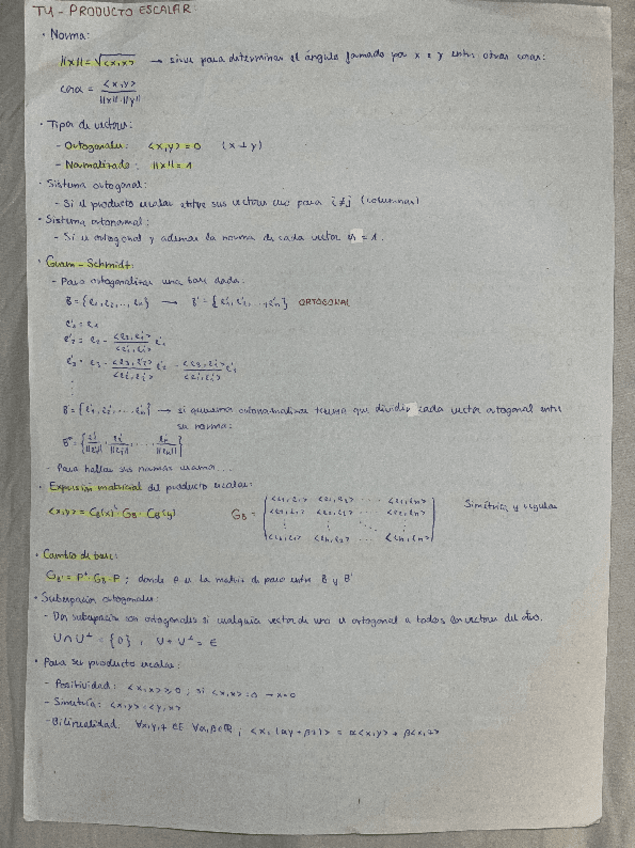 T4 - PRODUCTO ESCALAR:
· Norma:
||x|| = √<x,x> → sirve para determinar el ángulo formado por x e y entre otras cosas:
cosα = <x,y> / ||x||·||y||
· Tipos de vectores:
- Ortogonales: <x,y> = 0 (x ⊥ y)
- Normalizado: ||x|| = 1
· Sistema ortogonal:
- Si el producto escalar entre sus vectores es 0 para i≠j (columnas)
· Sistema ortonormal:
- Si es ortogonal y además la norma de cada vector es = 1.
· Gram-Schmidt:
- Para ortogonalizar una base dada:
B = {e₁, e₂, ..., eₙ} → B' = {e'₁, e'₂, ..., e'ₙ} ORTOGONAL
e'₁ = e₁
e'₂ = e₂ - <e₂,e'₁> / <e'₁,e'₁> e'₁
e'₃ = e₃ - <e₃,e'₂> / <e'₂,e'₂> e'₂ - <e₃,e'₁> / <e'₁,e'₁> e'₁
B' = {e'₁, e'₂, ... e'ₙ} → si queremos ortonormalizar tenemos que dividir cada vector ortogonal entre
su norma:
B'' = {e'₁/||e'₁||, e'₂/||e'₂||, ... eₙ/||eₙ||}
- Para hallar sus normas usamos...
· Expresión matricial del producto escalar:
<x,y> = C_B(x)ᵗ · G_B · C_B(y) G_B = Simétrica y regular
<e₁,e₁> <e₁,e₂> ... <e₁,eₙ>
<e₂,e₁> <e₂,e₂> ... <e₂,eₙ>
<eₙ,e₁> <eₙ,e₂> ... <eₙ,eₙ>
· Cambio de base:
G_B' = Pᵗ · G_B · P ; donde P es la matriz de paso entre B y B'
· Subespacios ortogonales:
- Dos subespacios son ortogonales si cualquier vector de uno es ortogonal a todos los vectores del otro.
U ∩ U⊥ = {0}, U + U⊥ = E
· Para ser producto escalar:
- Positividad: <x,x> ≥ 0 ; si <x,x> = 0 → x=0
- Simetría: <x,y> = <y,x>
- Bilinealidad: ∀x,y,z ∈ E ∀α,β ∈ ℝ ; <x, (αy + βz)> = α<x,y> + β<x,z>